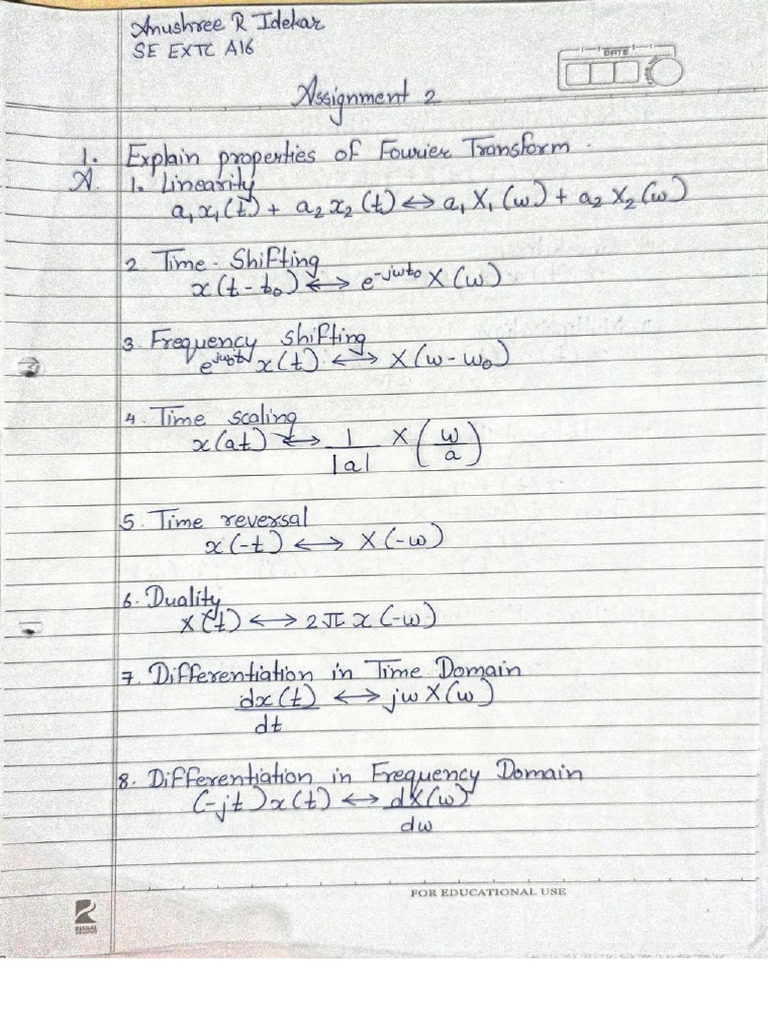 Anushree R Idekar
SE EXTC A16
DATE
Assignment 2
1. Explain properties of Fourier Transform.
A. 1. Linearity
a₁x₁(t) + a₂x₂(t) ↔ a₁X₁(ω) + a₂X₂(ω)
2. Time-Shifting
x(t-t₀) ↔ e^-jωt₀ X(ω)
3. Frequency Shifting
e^jω₀t x(t) ↔ X(ω-ω₀)
4. Time scaling
x(at) ↔ 1/|a| X(ω/a)
5. Time reversal
x(-t) ↔ X(-ω)
6. Duality
X(t) ↔ 2π x(-ω)
7. Differentiation in Time Domain
dx(t)/dt ↔ jω X(ω)
8. Differentiation in Frequency Domain
(-jt)x(t) ↔ dX(ω)/dω
FOR EDUCATIONAL USE